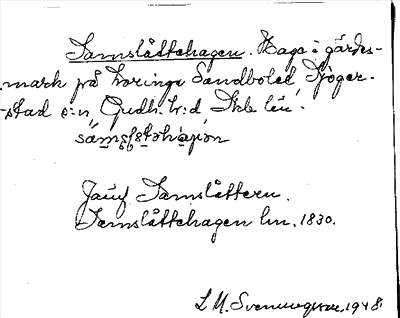 Samslåttehagen. Hage i gärdes-
mark på Toringe Sandboled, Sjöger-
stad s:n, Gudh. h:d, Skb. län.
Jämf Samslåttern.
Samslåttehagen lm. 1830.
L M. Svenungsson, 1948